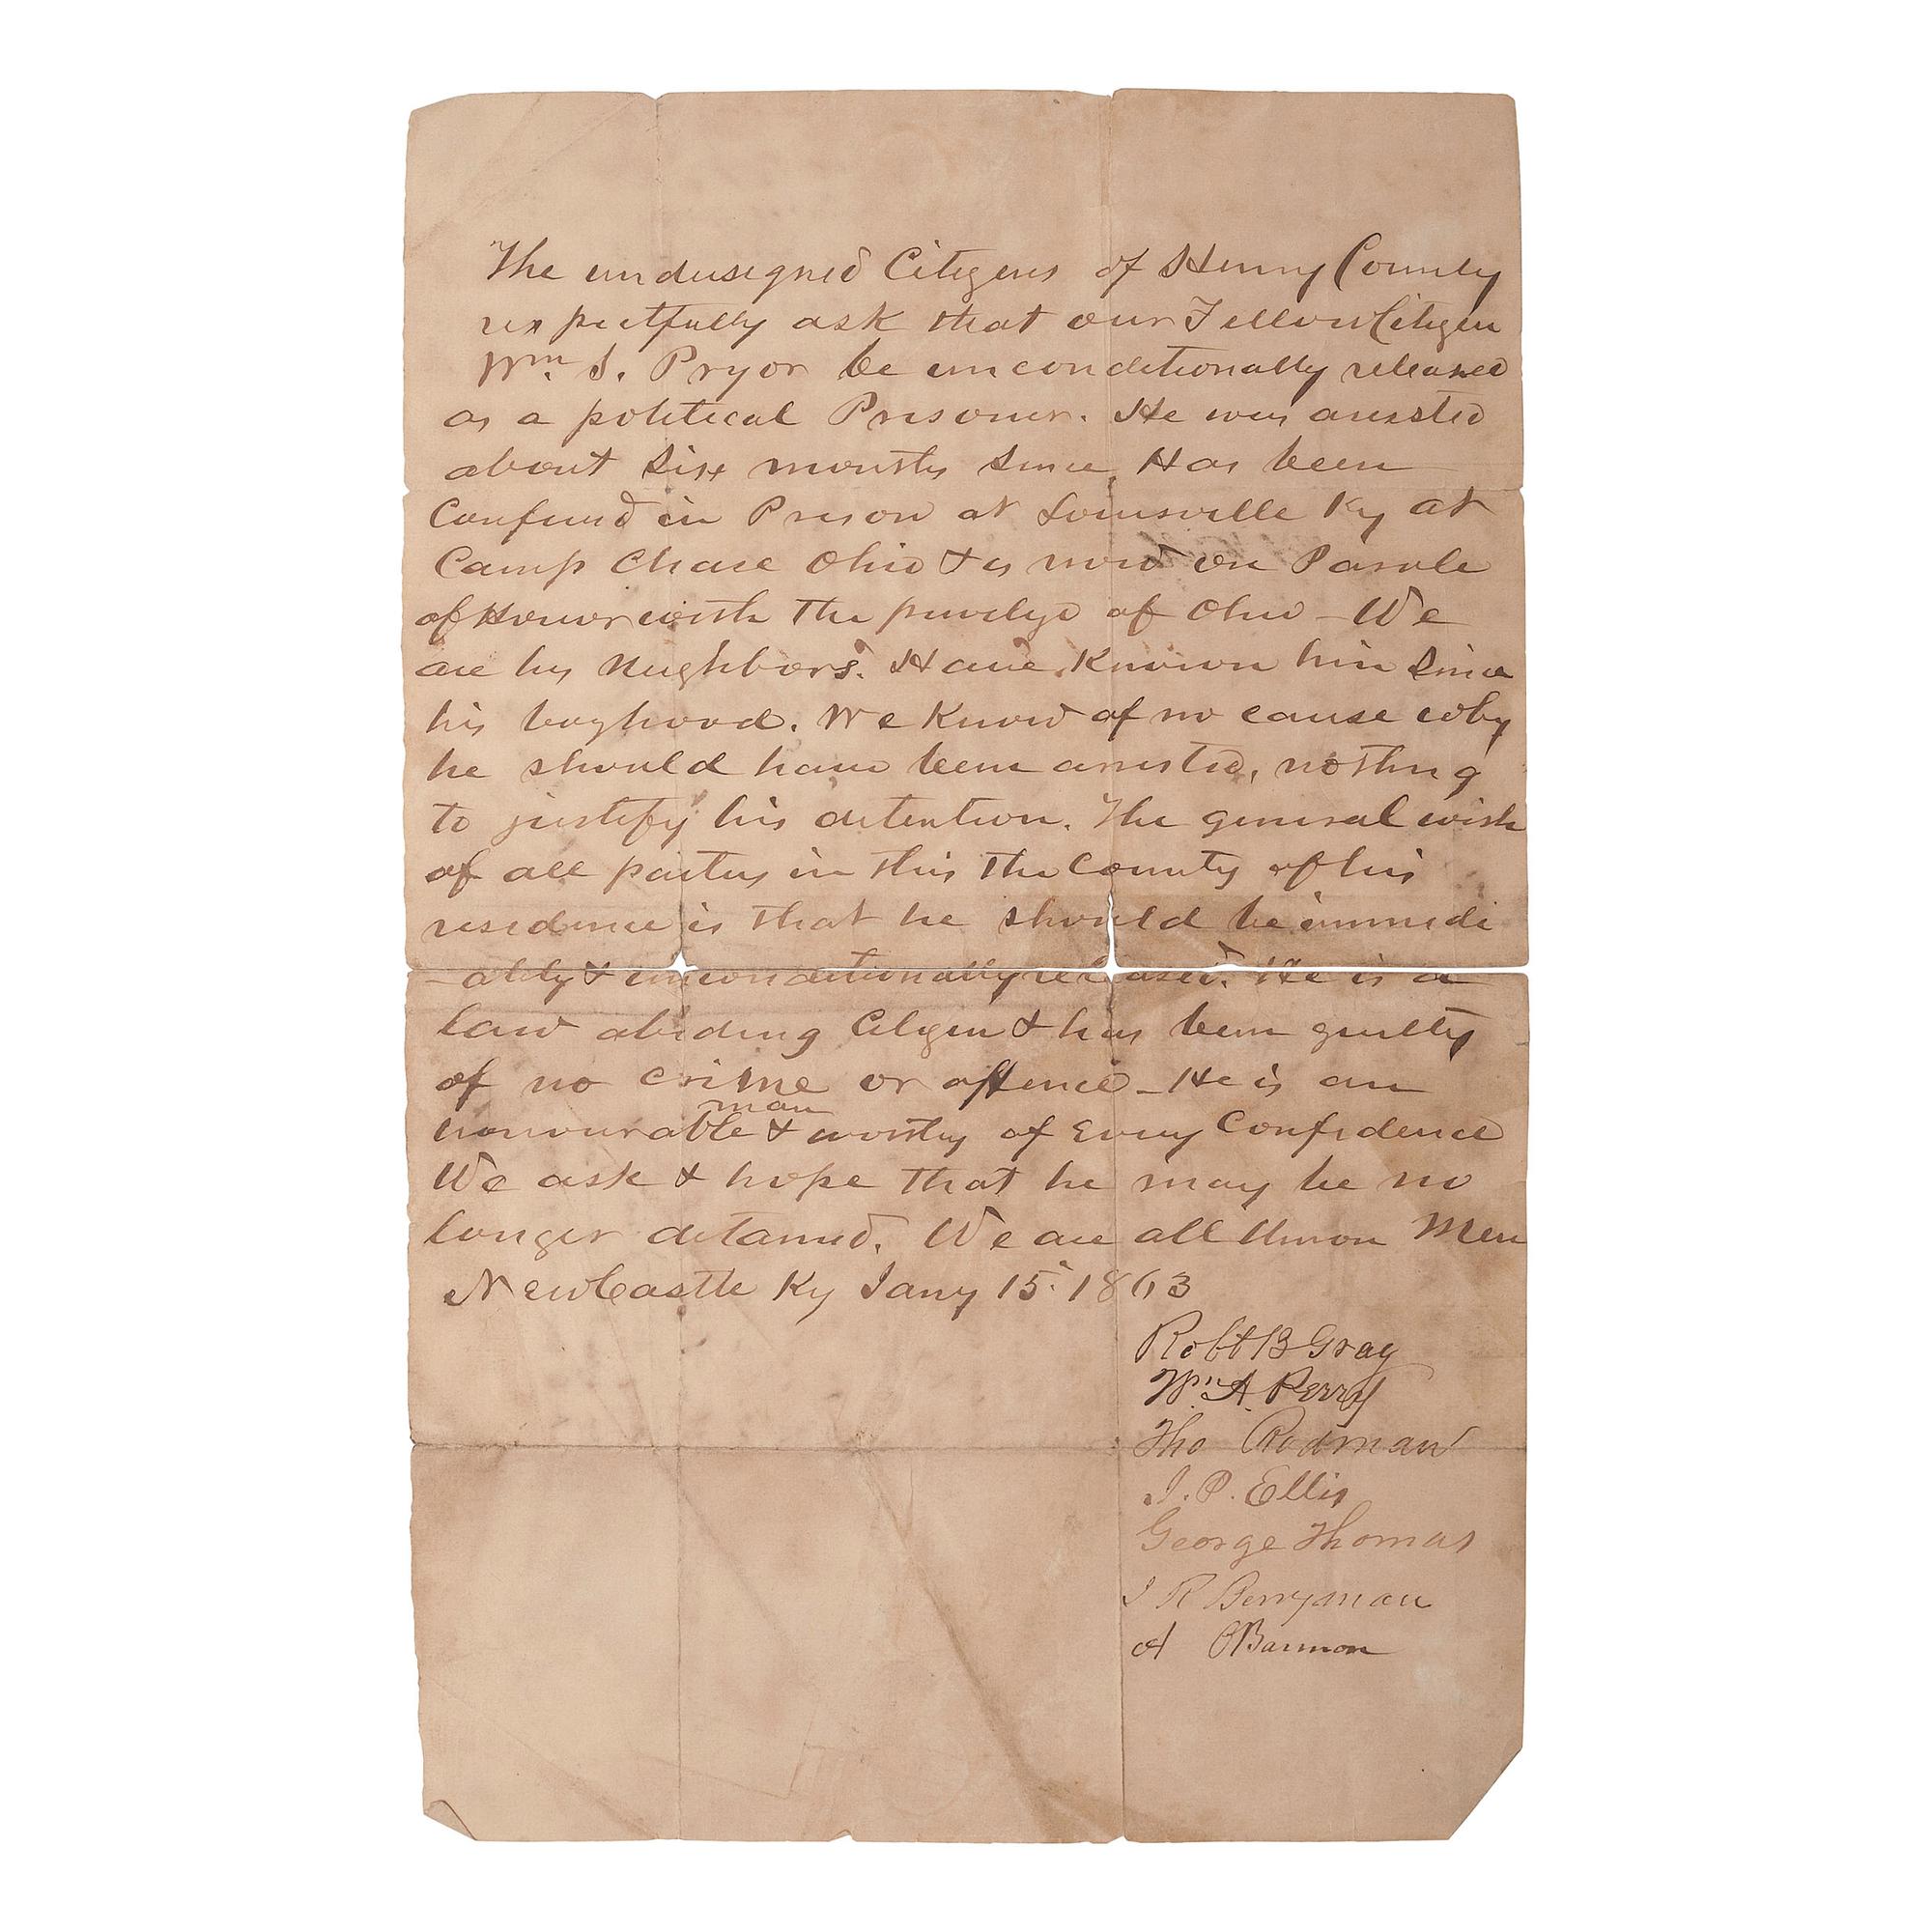 The undersigned Citizens of Henry County
respectfully ask that our Fellow Citizen
Wm. S. Pryor be unconditionally released
as a political Prisoner. He was arrested
about Six months Since, Has been
Confined in Prison at Louisville Ky at
Camp Chase Ohio & is now on Parole
of Honor with the privelige of Ohio - We
are his Neighbors. Have Known him Since
his boyhood. We Know of no cause why
he should have been arrested, nothing
to justify his detention. The general wish
of all parties in this the County of his
residence is that he should be immedi
-ately & unconditionally released. He is a
law abiding Citizen & has been guilty
of no crime or offence - He is an
man
honourable & worthy of Every Confidence
We ask & hope that he may be no
longer detained. We are all Union Men
New Castle Ky Jany 15. 1863
Robt B Gray
Wm. A. Perry
Tho Rodman
J. P. Ellis
George Thomas
J R Berryman
A OBannon